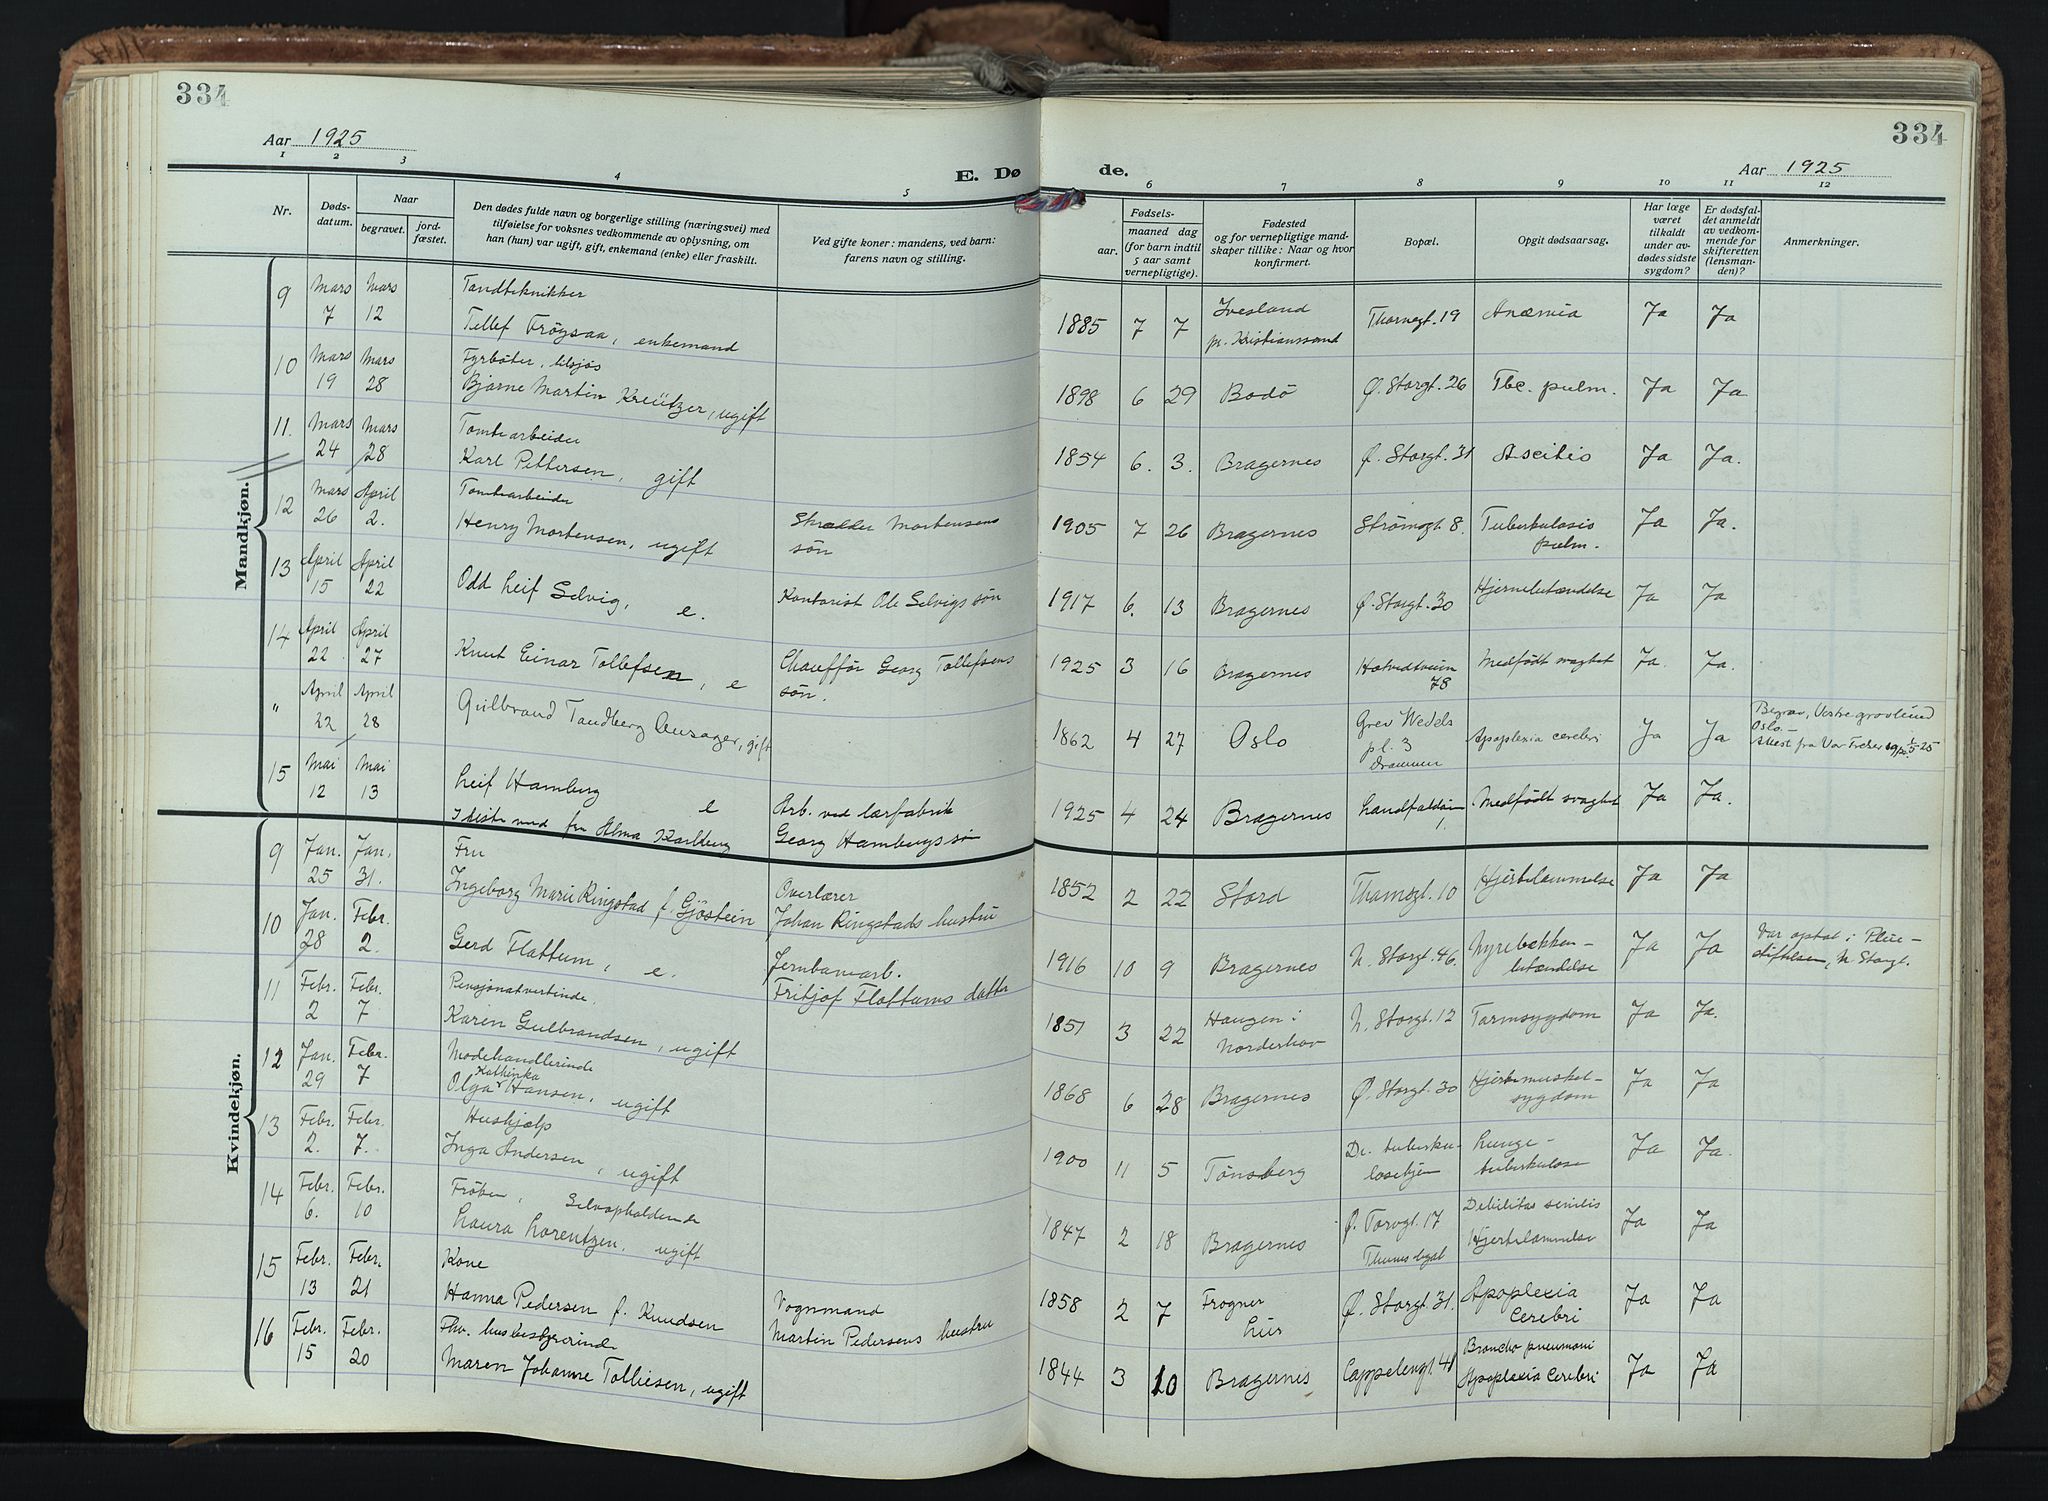 334
334
Aar 1925
E. Dø
de.
Aar 1925
1 2 3 4 5 6 7 8 9 10 11 12
Nr.
Døds-
datum.
Naar
begravet.
jord-
fæstet.
Den dødes fulde navn og borgerlige stilling (næringsvei) med
tilføielse for voksnes vedkommende av oplysning, om
han (hun) var ugift, gift, enkemand (enke) eller fraskilt.
Ved gifte koner: mandens, ved barn:
farens navn og stilling.
Fødsels-
aar.
maaned dag
(for barn indtil
5 aar samt
vernepligtige).
Fødested
og for vernepligtige mand-
skaper tillike: Naar og hvor
konfirmert.
Bopæl.
Opgit dødsaarsag.
Har læge
været
tilkaldt
under av-
dødes sidste
sygdom?
Er dødsfal-
det anmeldt
av vedkom-
mende for
skifteretten
(lensman-
den)?
Anmerkninger.
Mandkjøn.
9 Mars 7 Mars 12 Tandtekniker
Tellef Frøysaa, enkemand 1885 7 7 Ivesland
pr. Kristianssand Thornegt. 19 Anæmia Ja Ja
10 Mars 19 Mars 28 Fyrbøter, tilsjøs
Bjarne Martin Kreützer, ugift 1898 6 29 Bodö Ø. Storgt. 26 Tbc. pulm. Ja Ja
11. Mars 24 Mars 28 Tomtearbeider
Karl Pettersen, gift 1854 6. 3. Bragernes Ø. Storgt. 31 Ascitis Ja Ja.
12 Mars 26 April 2. Tomtearbeider
Henry Mortensen, ugift Skrædder Mortensens
søn 1905 7 26 Bragernes Strömsgt 8. Tuberkulosis
pulm. Ja Ja.
13 April 15 April 22 Odd Leif Selvig, e. Kontorist Ole Selvigs søn 1917 6. 13 Bragernes Ø. Storgt. 30 Hjernebetændelse Ja Ja
14 April 22 April 27 Knut Einar Tollefsen, e Chauffør Georg Tollefsens
søn. 1925 3 16 Bragernes 78 Medfödt svaghet Ja Ja.
" April 22 April 28 Gulbrand Tandberg Aursager, gift 1862 4 27 Oslo Grev Wedels
pl. 3
Drammen Apoplexia cerebri Ja Ja Begrav. Vestre gravlund
Oslo.—
Attest fra Vor Frelser
15 Mai 12 Mai 13 Leif Hamberg e
I kiste med fru Alma Karlberg Arb. ved lærfabrik
Georg Hambergs søn 1925 4 24 Bragernes Landfaldöien
1. Medfödt svaghet Ja Ja.
Kvindekjøn.
9 Jan. 25 Jan. 31. Fru
Ingeborg Marie Ringstad f. Gjöstein Overlærer
Johan Ringstads hustru 1852 2 22 Stord Thornegt. 10 Hjertelammelse Ja Ja
10 Jan. 28 Febr. 2. Gerd Flattum, e. Jernbanearb.
Fritjof Flattums datter 1916 10 9 Bragernes N. Storgt. 46. Nyrebækken-
betændelse Ja Ja Var optat i Pleie-
stiftelsen, N. Storgt.
11 Febr. 2 Febr. 7 Pensjonatvertinde.
Karen Gulbrandsen, ugift 1851 3 22 Haugen i
Norderhov N. Storgt. 12 Tarmsygdom Ja Ja.
12 Jan. 29 Febr. 7 Modehandlerinde
Kathinka
Olga Hansen, ugift 1868 6 28 Bragernes Ø. Storgt. 30 Hjertemuskel-
sygdom Ja Ja
13 Febr. 2. Febr. 7. Hushjælp
Inga Andersen, ugift 1900 11 5 Tønsberg Dr. tuberku-
losehjem Lunge-
tuberkulose Ja Ja.
14 Febr. 6. Febr. 10 Frøken, Selvopholdende
Laura Lorentzen, ugift 1847 2 18 Bragernes Ø. Torvgt. 17
Thams legat Debilitas senilis
Hjertelammelse Ja Ja
15 Febr. 13 Febr. 21 Kone
Hanna Pedersen f. Knudsen Vognmand
Martin Pedersens hustru 1858 2 7 Frogner
Lier Ø. Storgt. 31. Apoplexia
Cerebri Ja Ja
16 Febr. 15 Febr. 20 Fhv. husbestyrerinde
Maren Johanne Tolliesen, ugift 1844 3 10 Bragernes Cappelensgt. 41 Broncho pneumoni
Apoplexia Cerebri Ja Ja